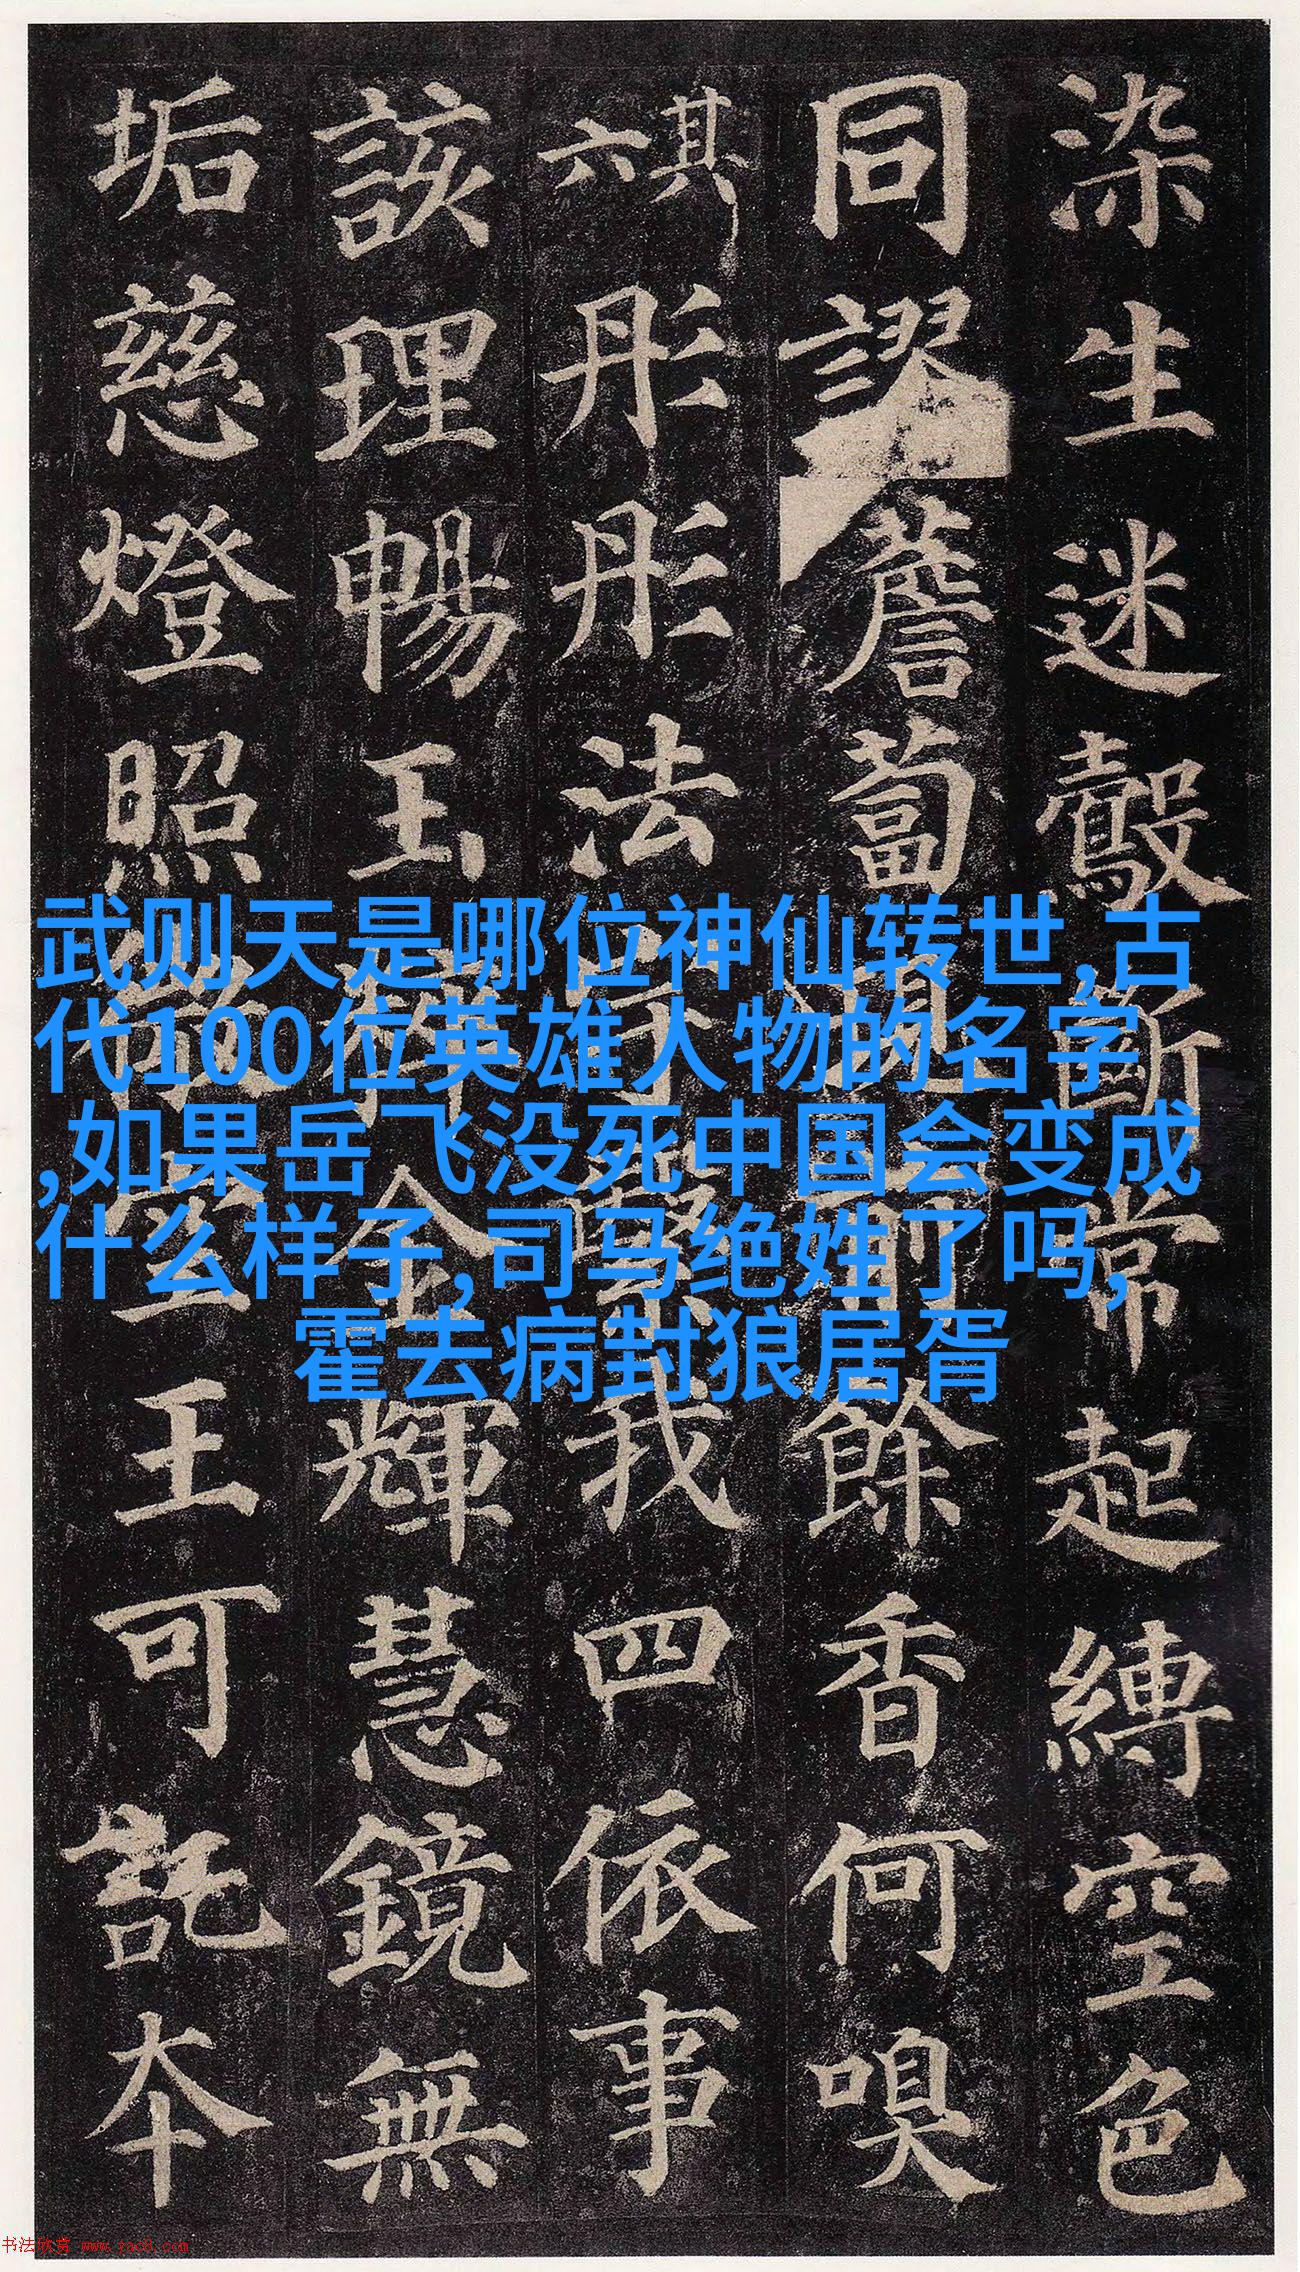 染生迷鷇斷常起縛空色
同謬薝蔔現前餘香何嗅
其六
彤彤法宇繄我四依事
該理暢玉粹金輝慧鏡無
垢慈燈照微空王可託本
武则天是哪位神仙转世,古
代100位英雄人物的名字
,如果岳飞没死中国会变成
什么样子,司马绝姓了吗,
霍去病封狼居胥
书法欣赏 www.yac8.com